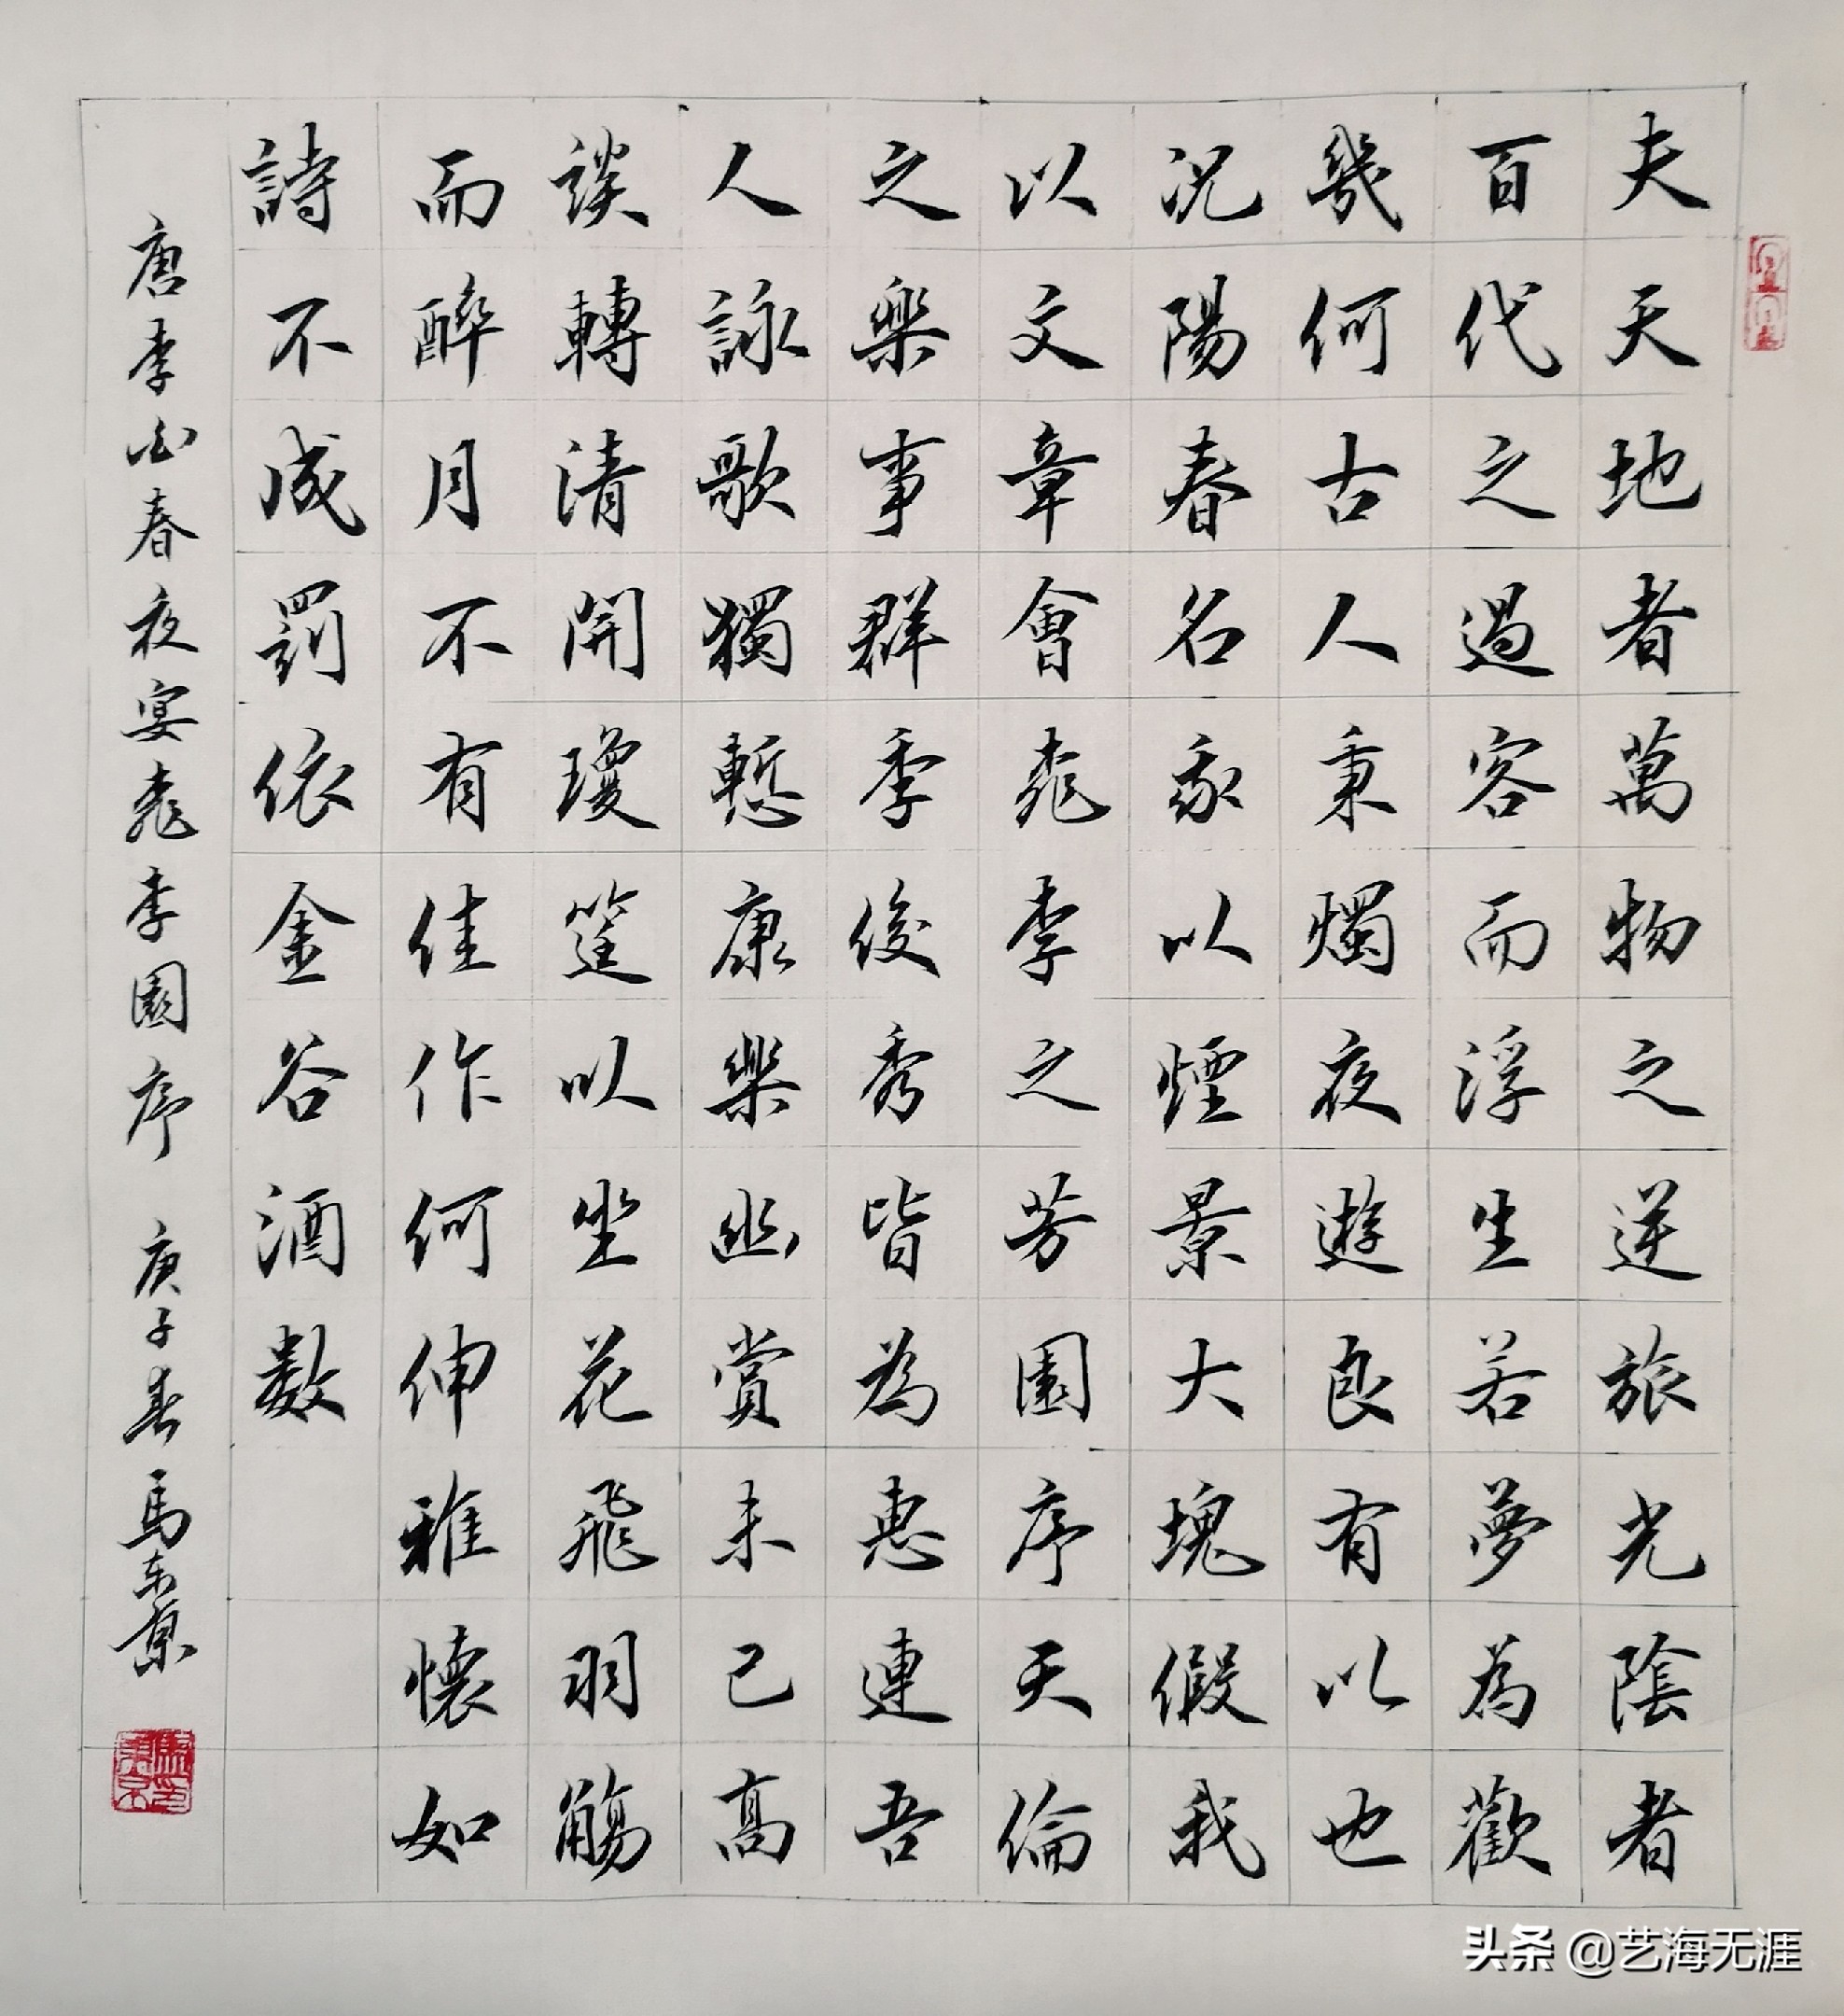 夫天地者萬物之逆旅光陰者
百代之過客而浮生若夢為歡
幾何古人秉燭夜遊良有以也
況陽春召我以煙景大塊假我
以文章會桃李之芳園序天倫
之樂事群季俊秀皆為惠連吾
人詠歌獨慙康樂幽賞未已高
談轉清開瓊筵以坐花飛羽觴
而醉月不有佳作何伸雅懷如
詩不成罰依金谷酒數
唐李白春夜宴桃李園序 庚子春 馬东
头条 @艺海无涯